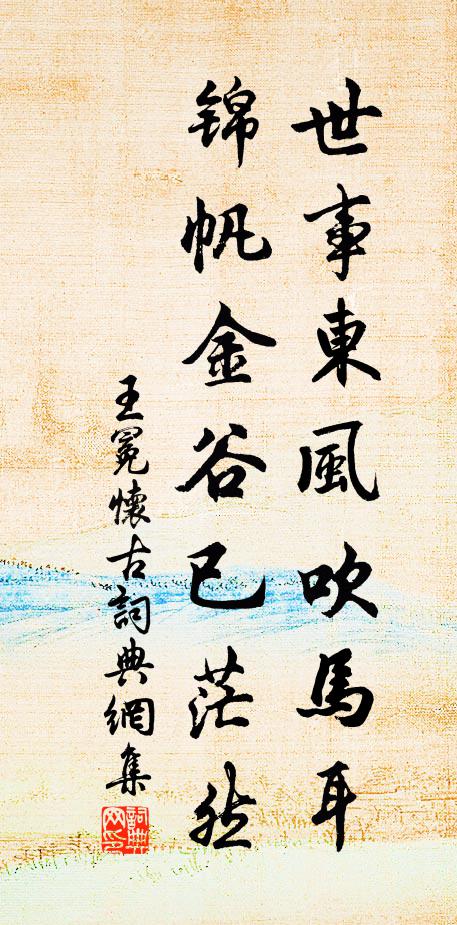 世事東風吹馬耳
錦帆金谷已茫然
王冕懷古詞典網集
詞典網印